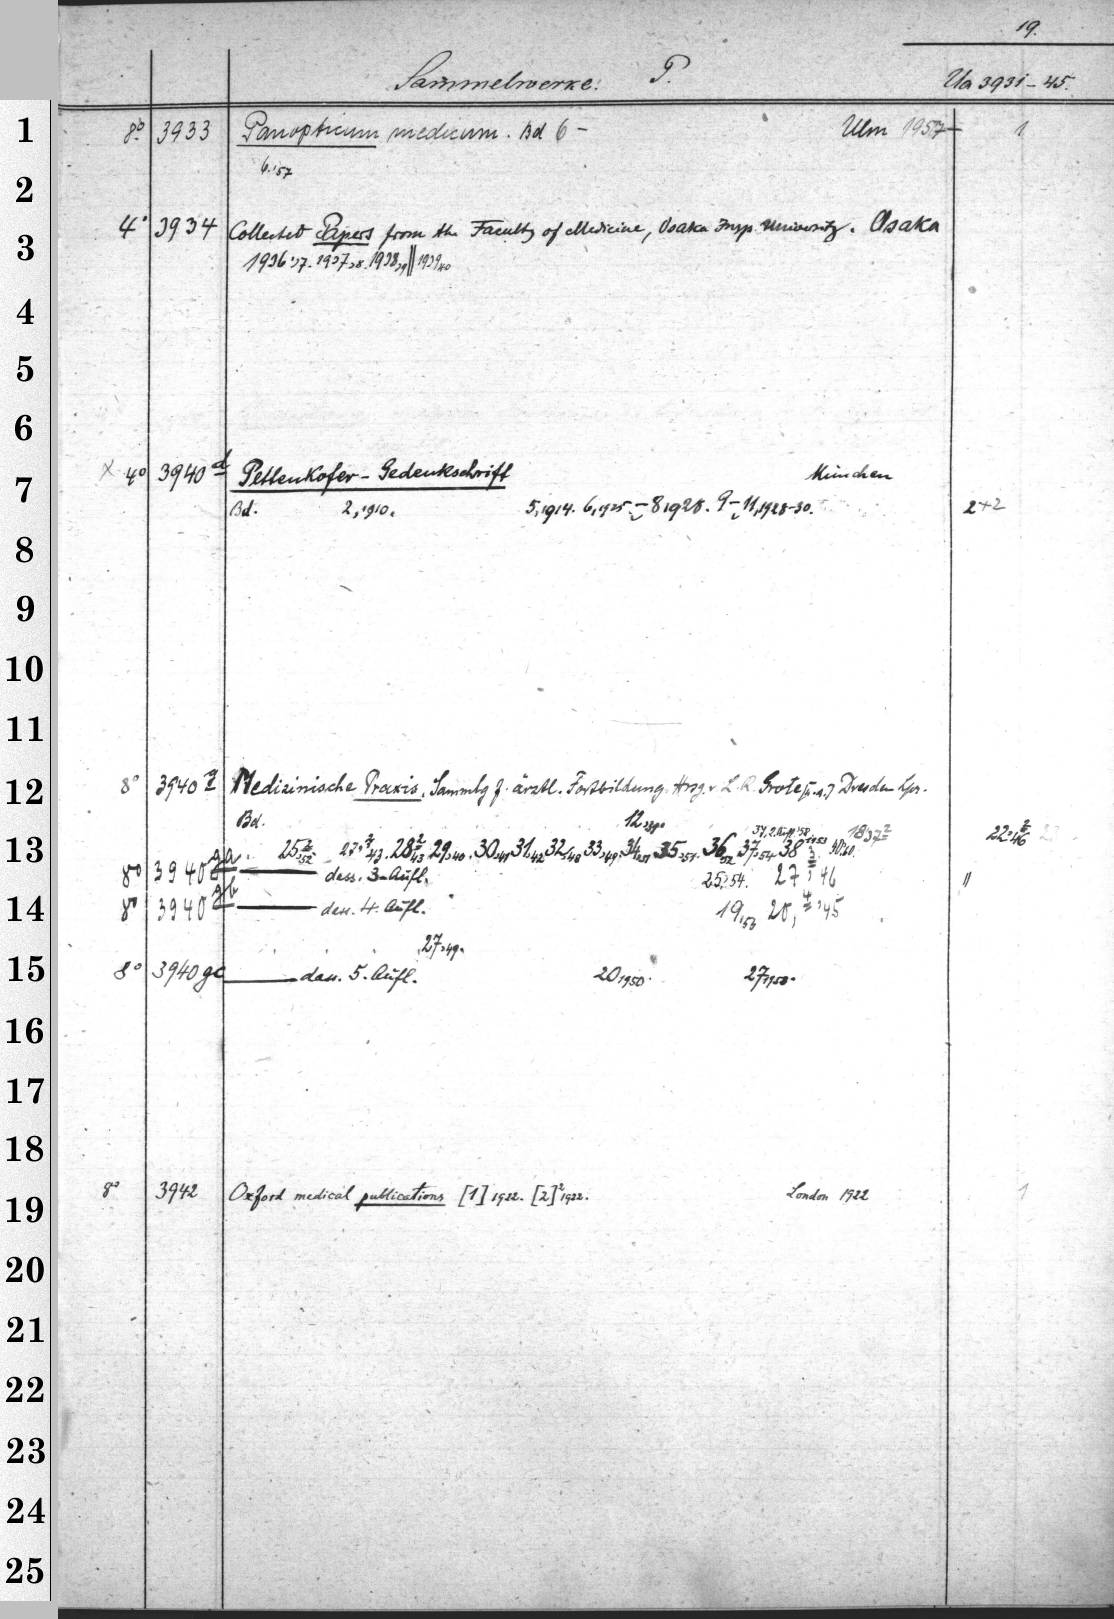 19.
Sammelwerke. P. Ua 3931-45.
1 8° 3933 Panopticum medicum. Bd 6 - Ulm 1957 1
6.'57
2
4° 3934 Collected Papers from the Faculty of Medicine, Osaka Imp. University. Osaka
3
1936'37. 1937,38. 1938,39 || 1939,40
4
5
6
x 4° 3940 d Pettenkofer-Gedenkschrift München
7
Bd. 2,1910. 5,1914. 6,1925. - 8,1928. 9-11,1928-30. 2+2
8
9
10
11
12 8° 3940 g Medizinische Praxis. Sammlg f. ärztl. Fortbildung. Hrsg. v. L. R. Grote [u.a.] Dresden Lpz.
Bd. 12,
37, 2.Aufl.'58 1953 18,37 2
13 25,52. 27, 43. 28,43 29,40. 30,41 31,42 32,48 33,49. 34,51. 35,51. 36,52 37,54 38 22,46
8° 3940 ga dess. 3. Aufl. 25,54. 27, 46 "
14 8° 3940 gb dass. 4. Aufl. 19,53 28, 45
27,49.
15 8° 3940 gc dass. 5. Aufl. 20,1950. 27,1950.
16
17
18
8° 3942 Oxford medical publications [1] 1922. [2]² 1922. London 1922 1
19
20
21
22
23
24
25